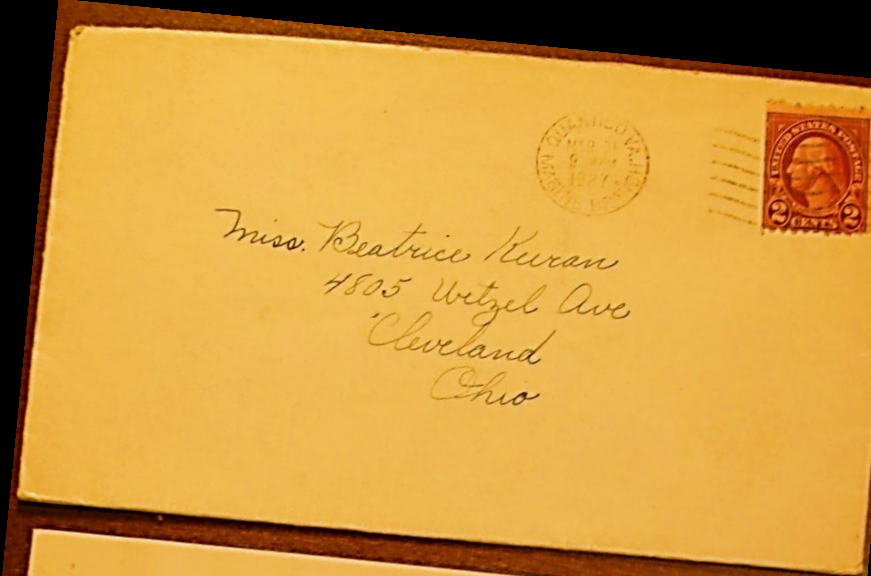 QUANTICO, VA.
MAR 21
9
1927
UNITED STATES POSTAGE
2 CENTS 2
Miss. Beatrice Kuran
4805 Wetzel Ave
Cleveland
Ohio